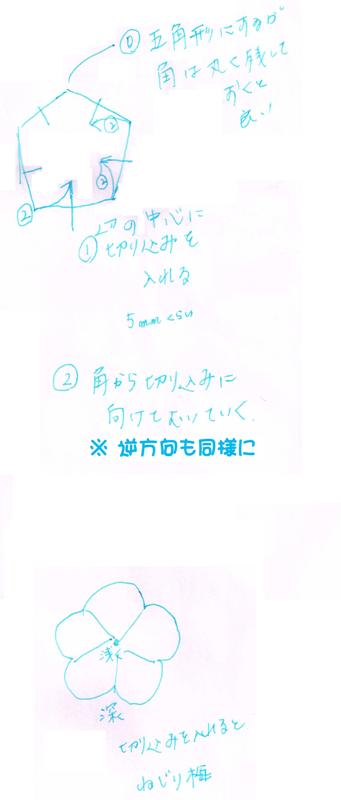 ⓪ 五角形にするが
角は丸く残して
おくと
良い
②
②
②
辺の中心に
① 切り込みを
入れる
5mmくらい
② 角から切り込みに
向けてむいていく。
※ 逆方向も同様に
浅く
深く
切り込みを入れると
ねじり梅